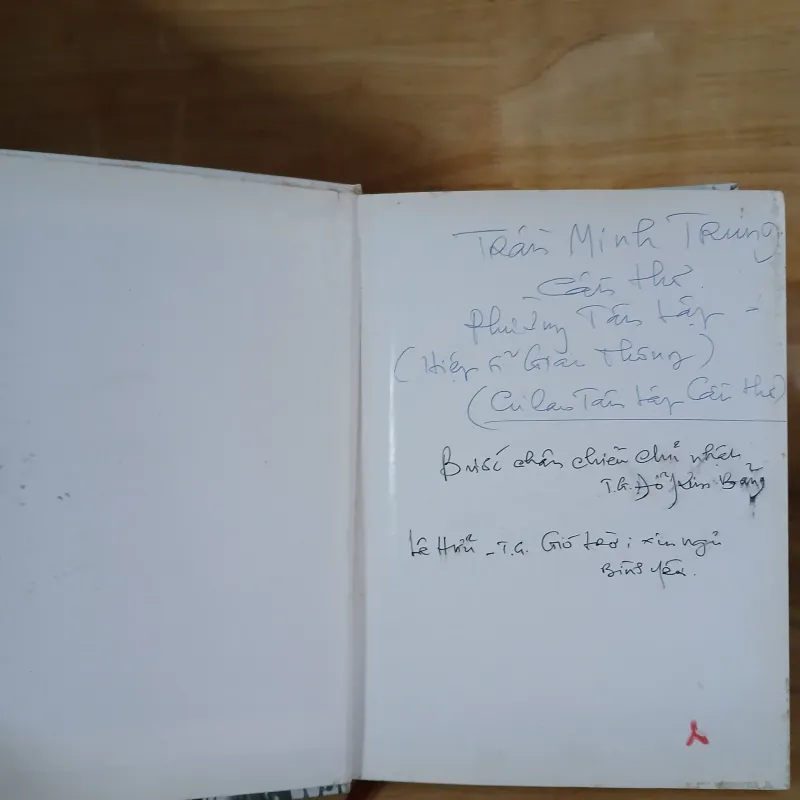 Trần Minh Trung
Cần thơ.
Phường Tân Lập -
(Hiệp sĩ Giao Thông)
(Cù lao Tân Lập Cần thơ)
Bước chân chiều chủ nhật
T.G. Đỗ Kim Bảng
Lê Hữu - T.G. Gió trời; xin ngủ
Bình yên.